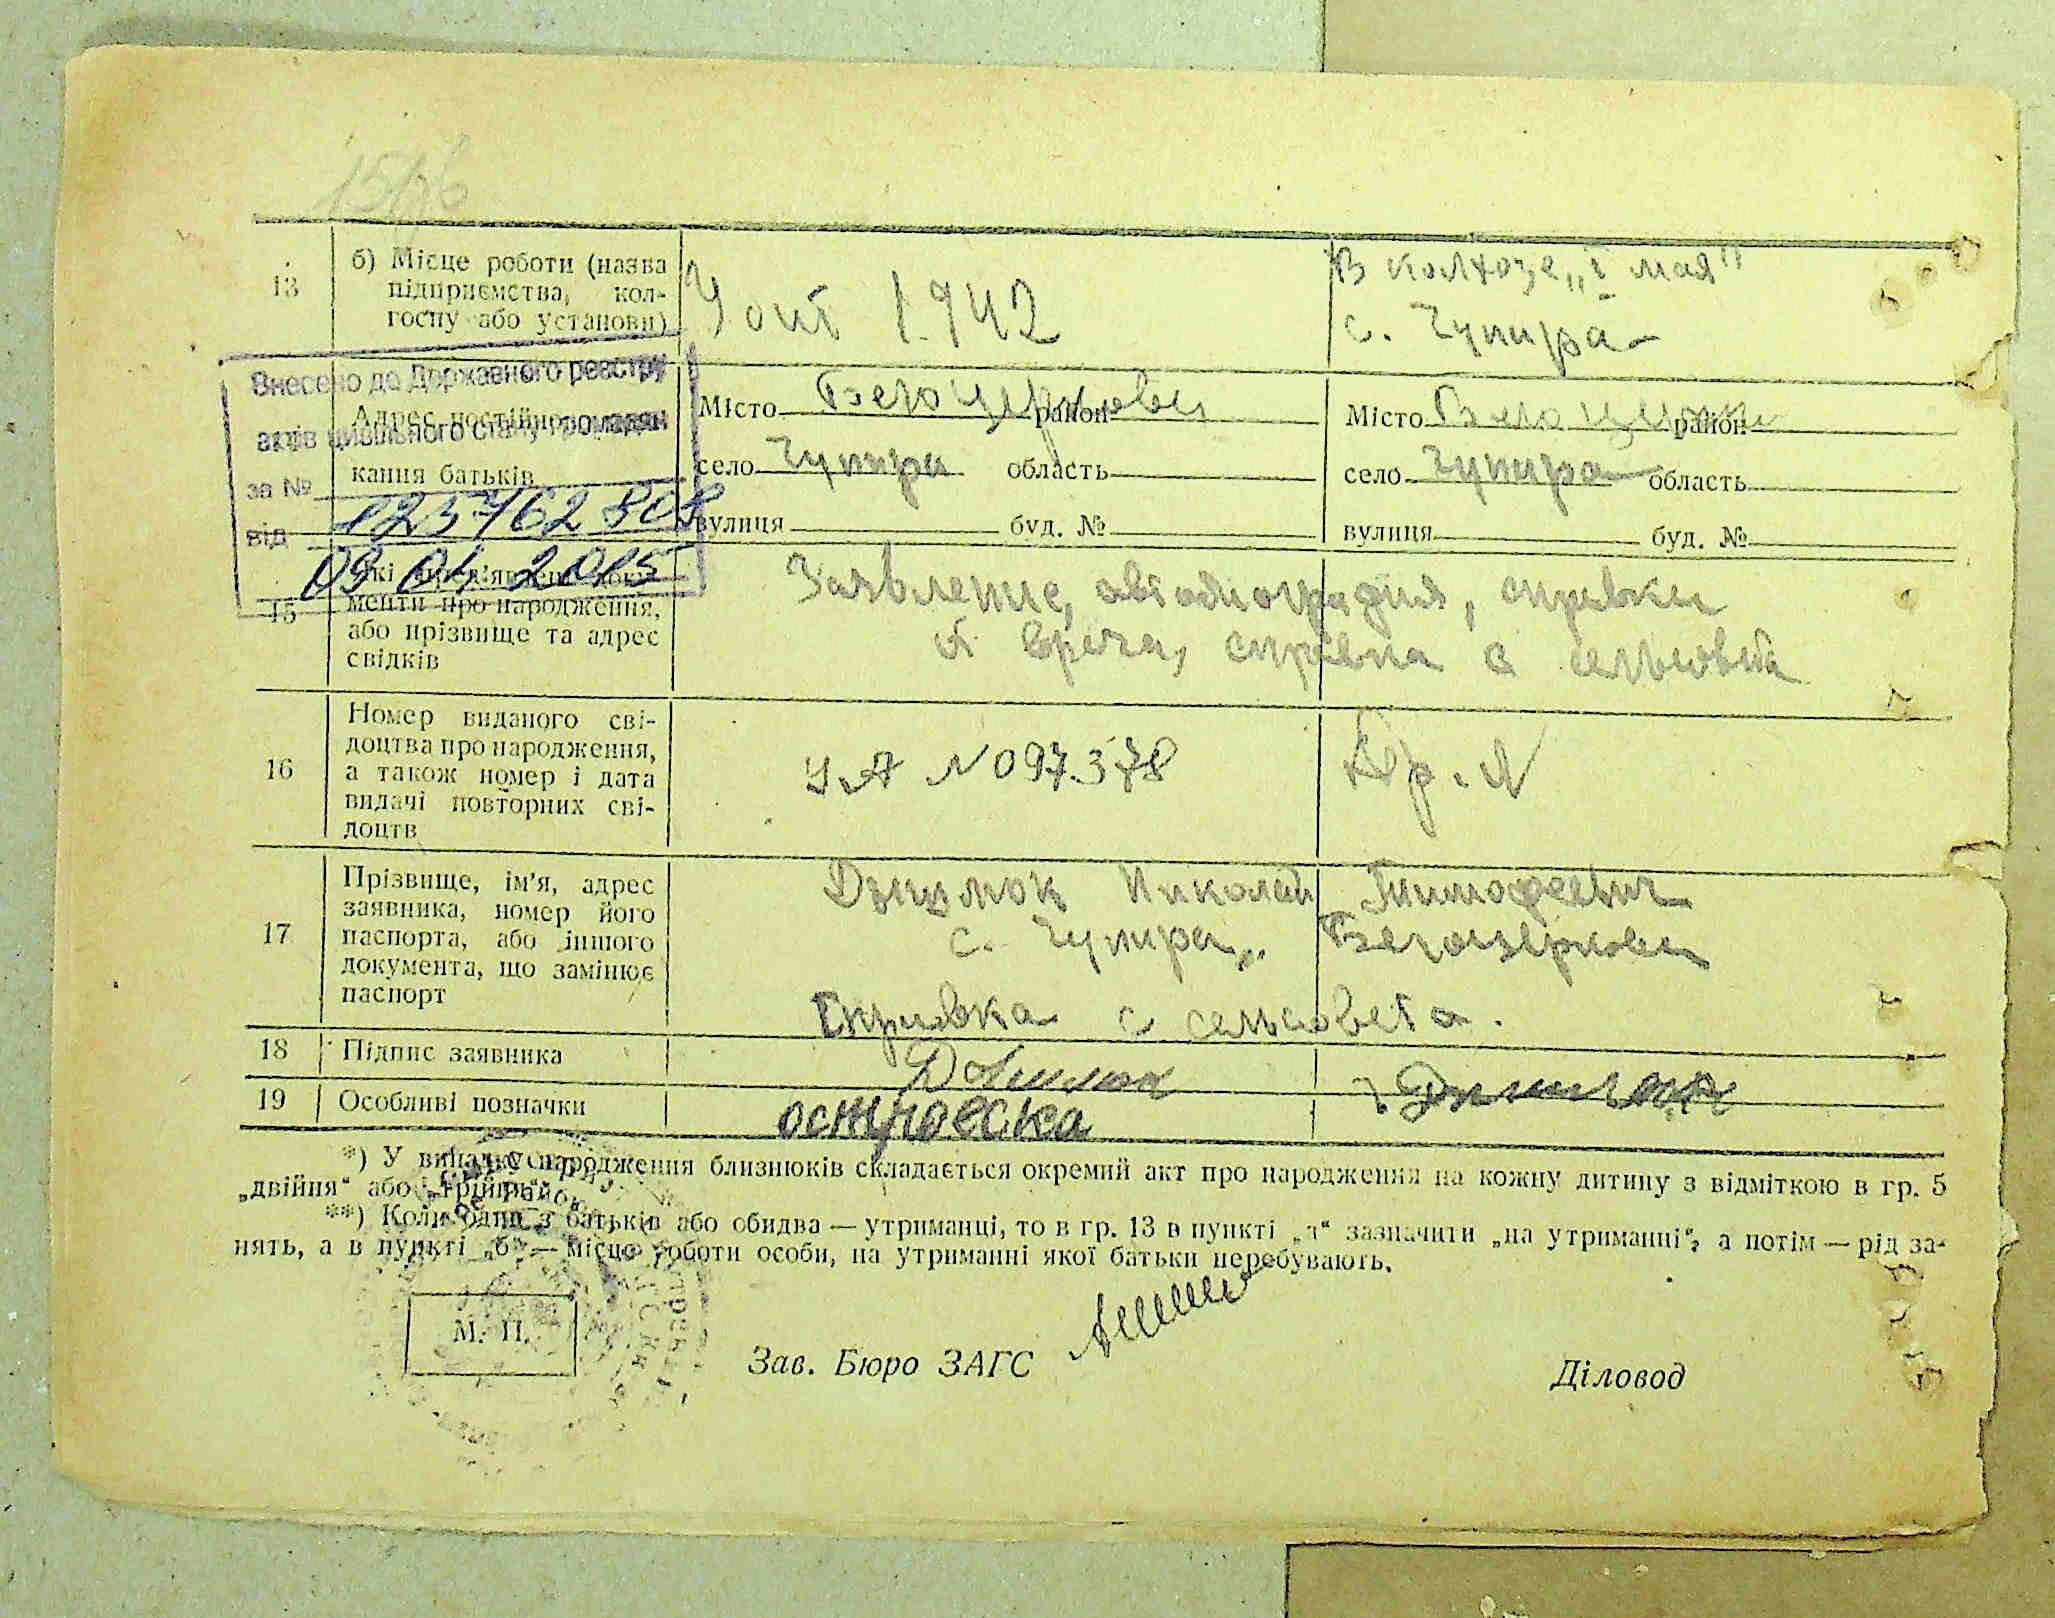 13
б) Місце роботи (назва
підприємства, кол-
госпу або установи)
1942
В колхозе „1 мая"
с. Чупира
Внесено до Державного реєстру
актів цивільного стану громадян
за №
від 09 04 2015
Адрес постійного
кання батьків
Місто Белоцеркови район
село Чупира область
вулиця буд. №
Місто район
село Чупира область
вулиця буд. №
15
Які пред'явлені доку-
менти про народження,
або прізвище та адрес
свідків
Заявление, автобиография, справки
от врача, справка с сельсовета
16
Номер виданого сві-
доцтва про народження,
а також номер і дата
видачі повторних сві-
доцтв
УА № 097378
17
Прізвище, ім'я, адрес
заявника, номер його
паспорта, або іншого
документа, що замінює
паспорт
Николай Тимофеевич
с. Чупира,
Справка с сельсовета.
18
Підпис заявника
19
Особливі позначки
*) У випадку народження близнюків складається окремий акт про народження на кожну дитину з відміткою в гр. 5
„двійня" або „трійня".
**) Коли один з батьків або обидва — утриманці, то в гр. 13 в пункті „а" зазначити „на утриманні", а потім — рід за-
нять, а в пункті „б" — місце роботи особи, на утриманні якої батьки перебувають.
М. П.
Зав. Бюро ЗАГС
Діловод